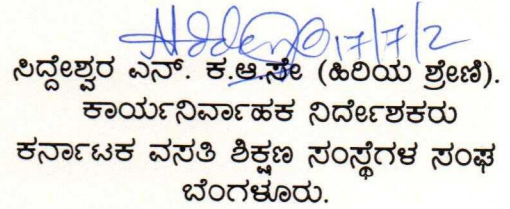 17/7/2
ಸಿದ್ದೇಶ್ವರ ಎನ್. ಕ.ಆ.ಸೇ (ಹಿರಿಯ ಶ್ರೇಣಿ).
ಕಾರ್ಯನಿರ್ವಾಹಕ ನಿರ್ದೇಶಕರು
ಕರ್ನಾಟಕ ವಸತಿ ಶಿಕ್ಷಣ ಸಂಸ್ಥೆಗಳ ಸಂಘ
ಬೆಂಗಳೂರು.